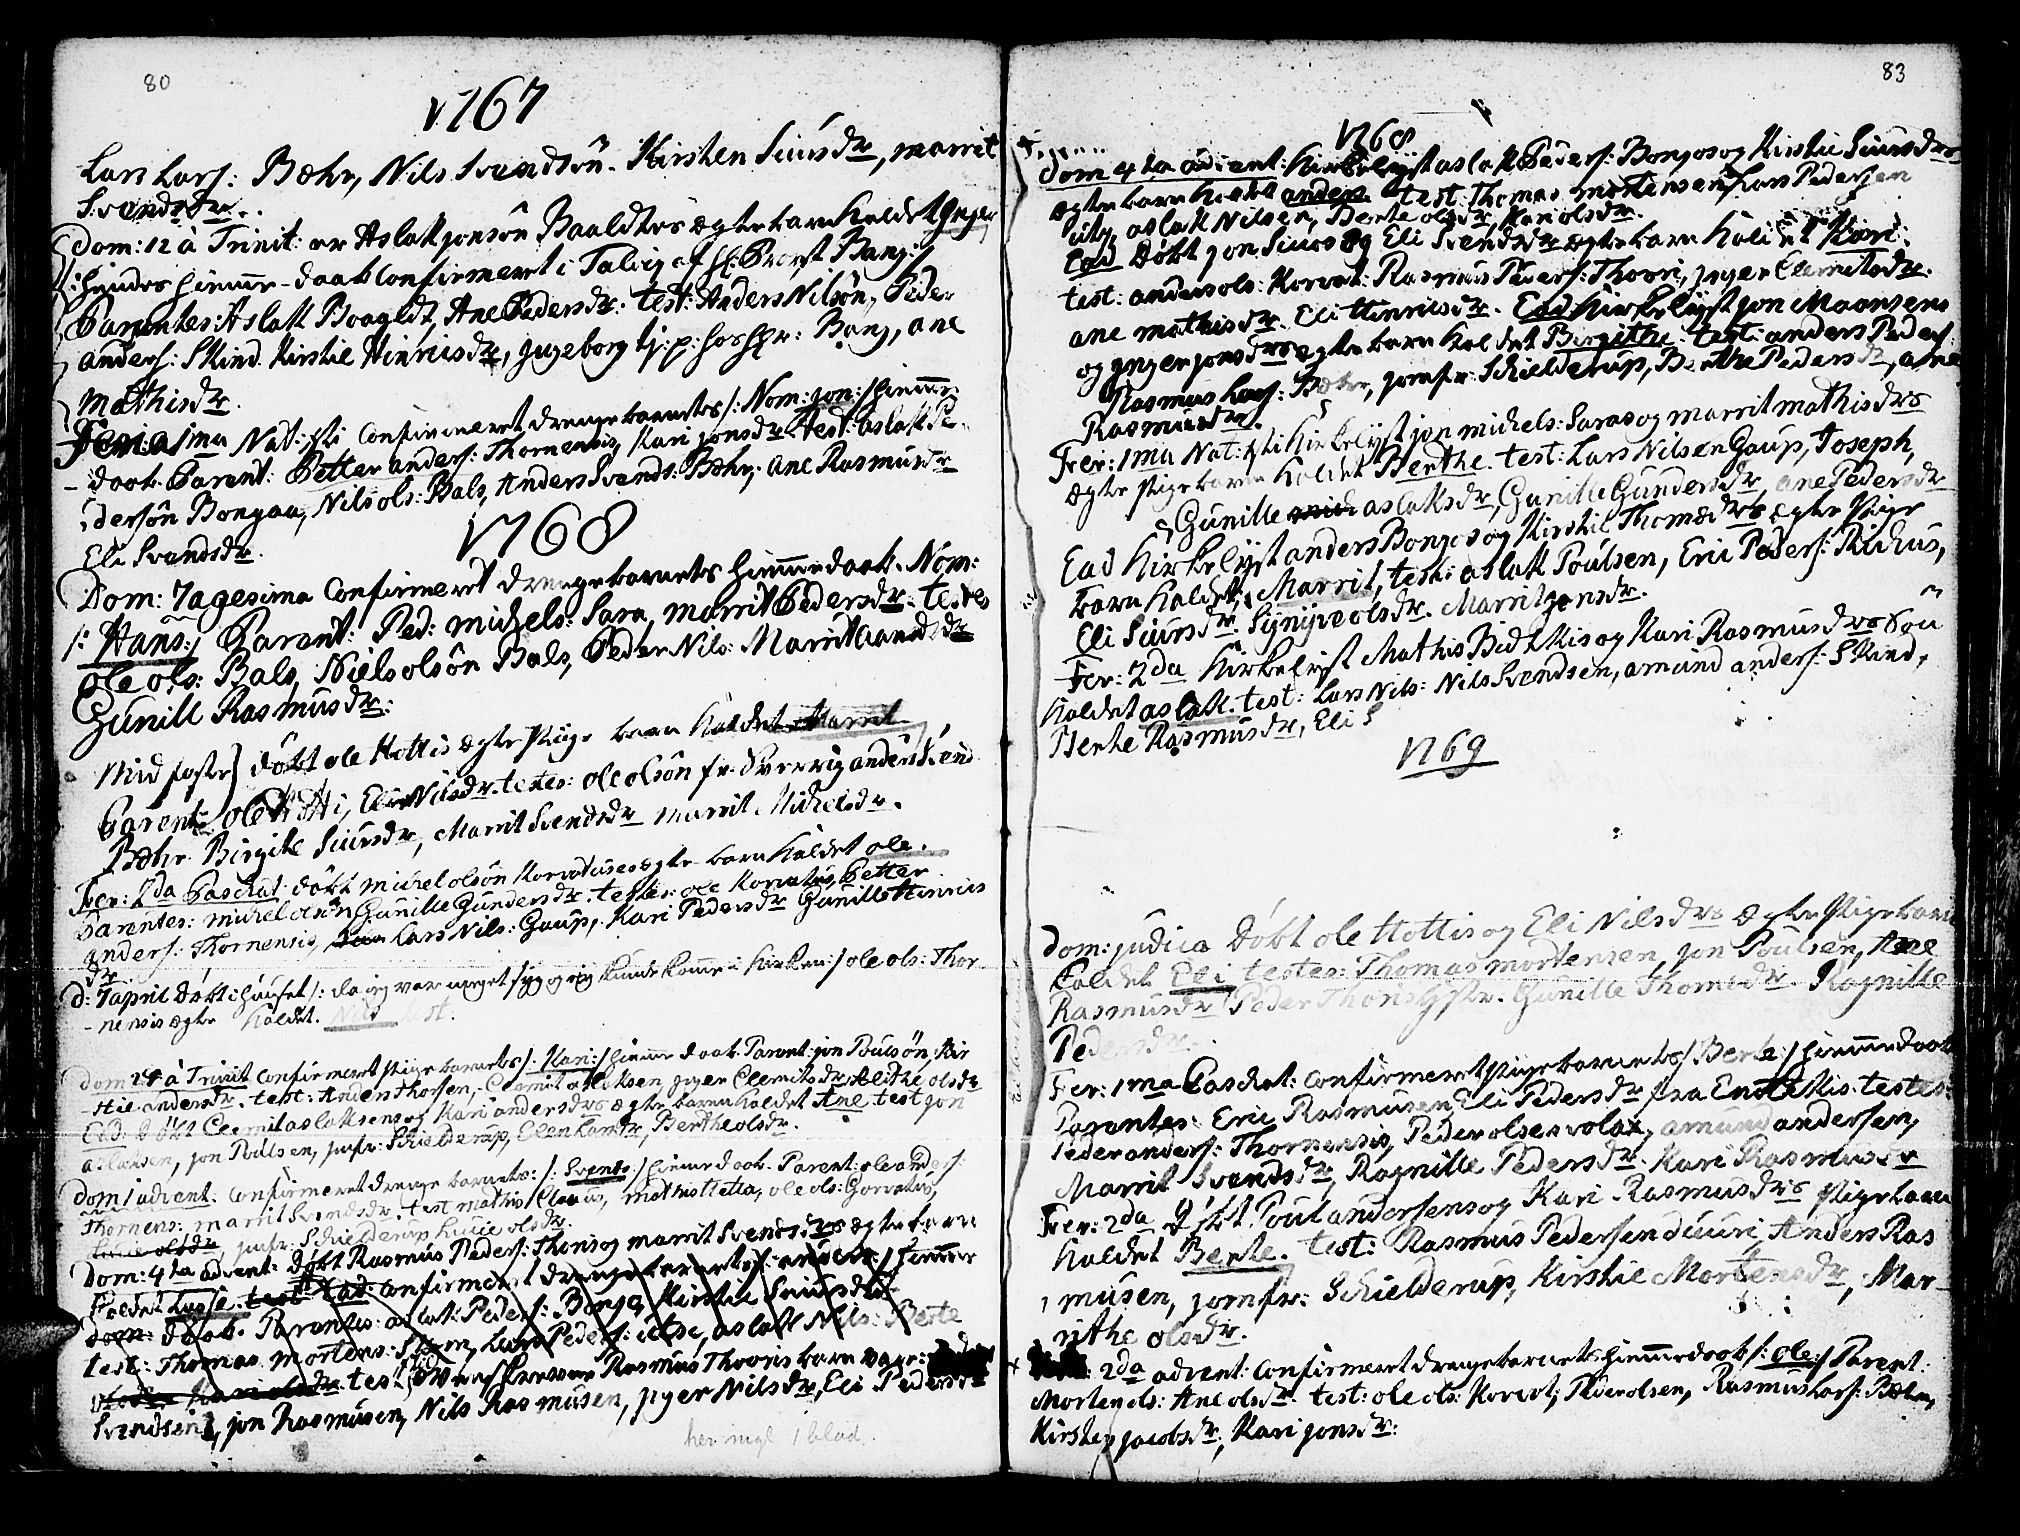 80
1767
Lars Lars: Bæhr, Nils Svendsôn. Kirsten Siursdr, marrit
Svendsdr.
Dom: 12 à Trinit: er Aslak jonsôn Baaldtes ægte barn kaldet Ynger
hiendes hiemme-daab confirmeret i Talvig af H: Provst Bang:/
Parentes: Aslak Boagldt, Ane Pedersdr: test: Anders Nilsôn, Peder
anders: Skind. Kirstie Hinricsdr, Jngeborg tj: p: hos Hr: Bang, ane
Mathisdr.
Feria 1ma Nat: Xti confirmeret drengebarnets /: Nom: jon:/ hiemme
daab. Parent: Petter anders: Thornensis, Kari jonsdr. test: aslak Pe-
dersôn Bongaa, Nils ols: Bals, Anders Svends: Bæhr, Ane Rasmusdr
Eli Svendsdr.
1768
Dom: 7agesima confirmeret drengebarnets hiemmedaab. Nom:
/: Hans:/ Parent: Ped: michels: Sara, marrit Pedersdr: testes
ole ols: Bals, Niels olsôn Bals, Peder Nils: Marrit aandsdr
Gunill Rasmusdr:
Mid faste] dôbt ole Hottis ægte Pige barn kaldet Marrit
Parent: ole Hotti, Eli Nilsdr. testes: ole olsôn fr. Sverrig anders Svend
Bæhr. Birgite Siursdr, Marrit Svendsdr marrit Michelsdr.
Fer: 2da Paschat: dôbt michel olsôn Korvatuses ægte barn kaldet ole.
Parentes: michel olsôn Gunille Gundersdr. testes: ole Korvatus, Petter
anders: Thornensis, Lars Nils: Gaup, Kari Pedersdr Gunille Hinrics
dr.
d: 7 april dôbt i huuset /: da jeg var meget syg og ej kunde komme i kirken:/ ole ols: Thor
-nensis ægte kaldet. Nils test.
Dom 24 à Trinit confirmeret pige barnets /: Kari:/ hiemme daab. Parent: jon Poulsôn, Kir
stie andersdr. test: Anders Thossen, Clemit aslaksen, jnger Clemitsdr. Alithe olsdr
Eod: dôbt Clemit aslaksens og Kari andersdrs ægte barn kaldet Ane test jon
aslaksen, jon Poulsen, jmfr: Schielderup, Elen Larsdr, Berthe olsdr.
Dom 1 advent. Confirmeret drenge barnets: /: Svends:/ hiemme daab. Parent: ole anders:
Thornens: marrit Svendsdr. test mathis Claus, mathis Hetta, ole ols: Gorvatus,
jmfr: Schielderup Lucie olsdr.
Dom: 4ta advent: Dôbt Rasmus Peders: Thoris og marrit Svendsdrs ægte barn
kaldet Lasse. test Eod: confirmeret drenge barnets /: anders:/ hiemme
daab. Parentes: aslak Peders: Bonjo, Kirstie Siursdr
test: Thomas Mortens: Lars Peders: aslak Nils: Berte
test: Rasmus Thooris barn vare:
Svendsen, jon Rasmusen, Nils Rasmusen, jnger Nilsdr, Eli Pedersdr
her mgl 1 blad.
83
1768
Dom 4ta advent: Kirkelyst aslak Peders: Bonjos og Kirstie Siursdrs
ægte barn kaldet anders test: Thomas mortensen, Lars Pedersen
aslak Nilsen, Berte olsdr, Kari olsdr.
Eod Dôbt jon Siurs og Eli Svendsdrs ægte barn kaldet Kari.
test: anders ols: Korvat: Rasmus Peders: Thoori, jnger Clemitsdr.
ane mathisdr. Eli Hinricsdr. Eod Kirkelyst jon Maansens
og ynger jonsdrs ægte barn kaldet Birgithe. test: anders Peders:
Rasmus Lars: Bæhr, jomfr: Schielderup, Berthe Pedersdr, ane
Rasmusdr.
Fer: 1ma Nat: Xti Kirkelyst jon michels: Saras og marrit mathisdrs
ægte Pigebarn kaldet Berthe. test: Lars Nilsen Gaup, Joseph,
Gunille aslaksdr, Gunille Gundersdr, ane Pedersdr
Eod Kirkelyst anders Bonjos og Kirstie Thomædrs ægte Pige
barn kaldet, Marrit, test: aslak Poulsen, Eric Peders: Rickus,
Eli Siursdr. Synyve olsdr. Marrit jonsdr.
Fer: 2da Kirkelyst Mathis Bidtkis og Kari Rasmusdrs Søn
kaldet aslak. test: Lars Nils: Nils Svendsen, amund anders: Skind,
Berte Rasmusdr, Eli S
1769
Dom: judica Dôbt ole Hottis og Eli Nilsdrs ægte Pigebarn
kaldet Eli testes: Thomas mortensen, jon Poulsen, Ane
Rasmusdr Peder Thoris Gunille Thomædr. Ragnille
Pedersdr.
Fer: 1ma Paschat: confirmeret Pigebarnets /: Berte:/ hiemmedaab
Parentes: Eric Rasmusen Eli Pedersdr fra Enotekis. testes:
Peder anders: Thornensis, Peder olsen volax, amund andersen,
Marrit Svendsdr, Ragnille Pedersdr. Kari Rasmusdr
Fer: 2da Dôbt Poul andersens og Kari Rasmusdrs Pigebarn
kaldet Berte. test: Rasmus Pedersen duuri, Anders Ras
musen, jomfr: Schielderup, Kirstie Mortensdr, Mar-
rithe olsdr.
2da advent: confirmeret drengebarnets hiemmedaab /: ole:/ Parent:
Morten ols: Ane olsdr. test: ole ols: Korvat, Peder olsen, Rasmus Lars: Bæhr,
Kirsten jacobsdr, Kari jonsdr: